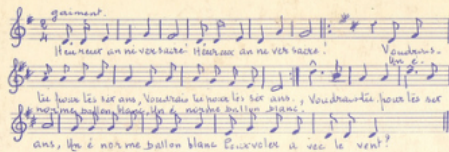 gaiment.
Heureux anneversaire! Heureux anneversaire! Voudrais-
Un é-
tu pour tes set ans, Voudrais tu pour tes set ans, Voudrais-tu pour tes set
norme ballon blanc, Un é norme ballon blanc.
ans, Un é norme ballon blanc Peux voler a vec le vent?